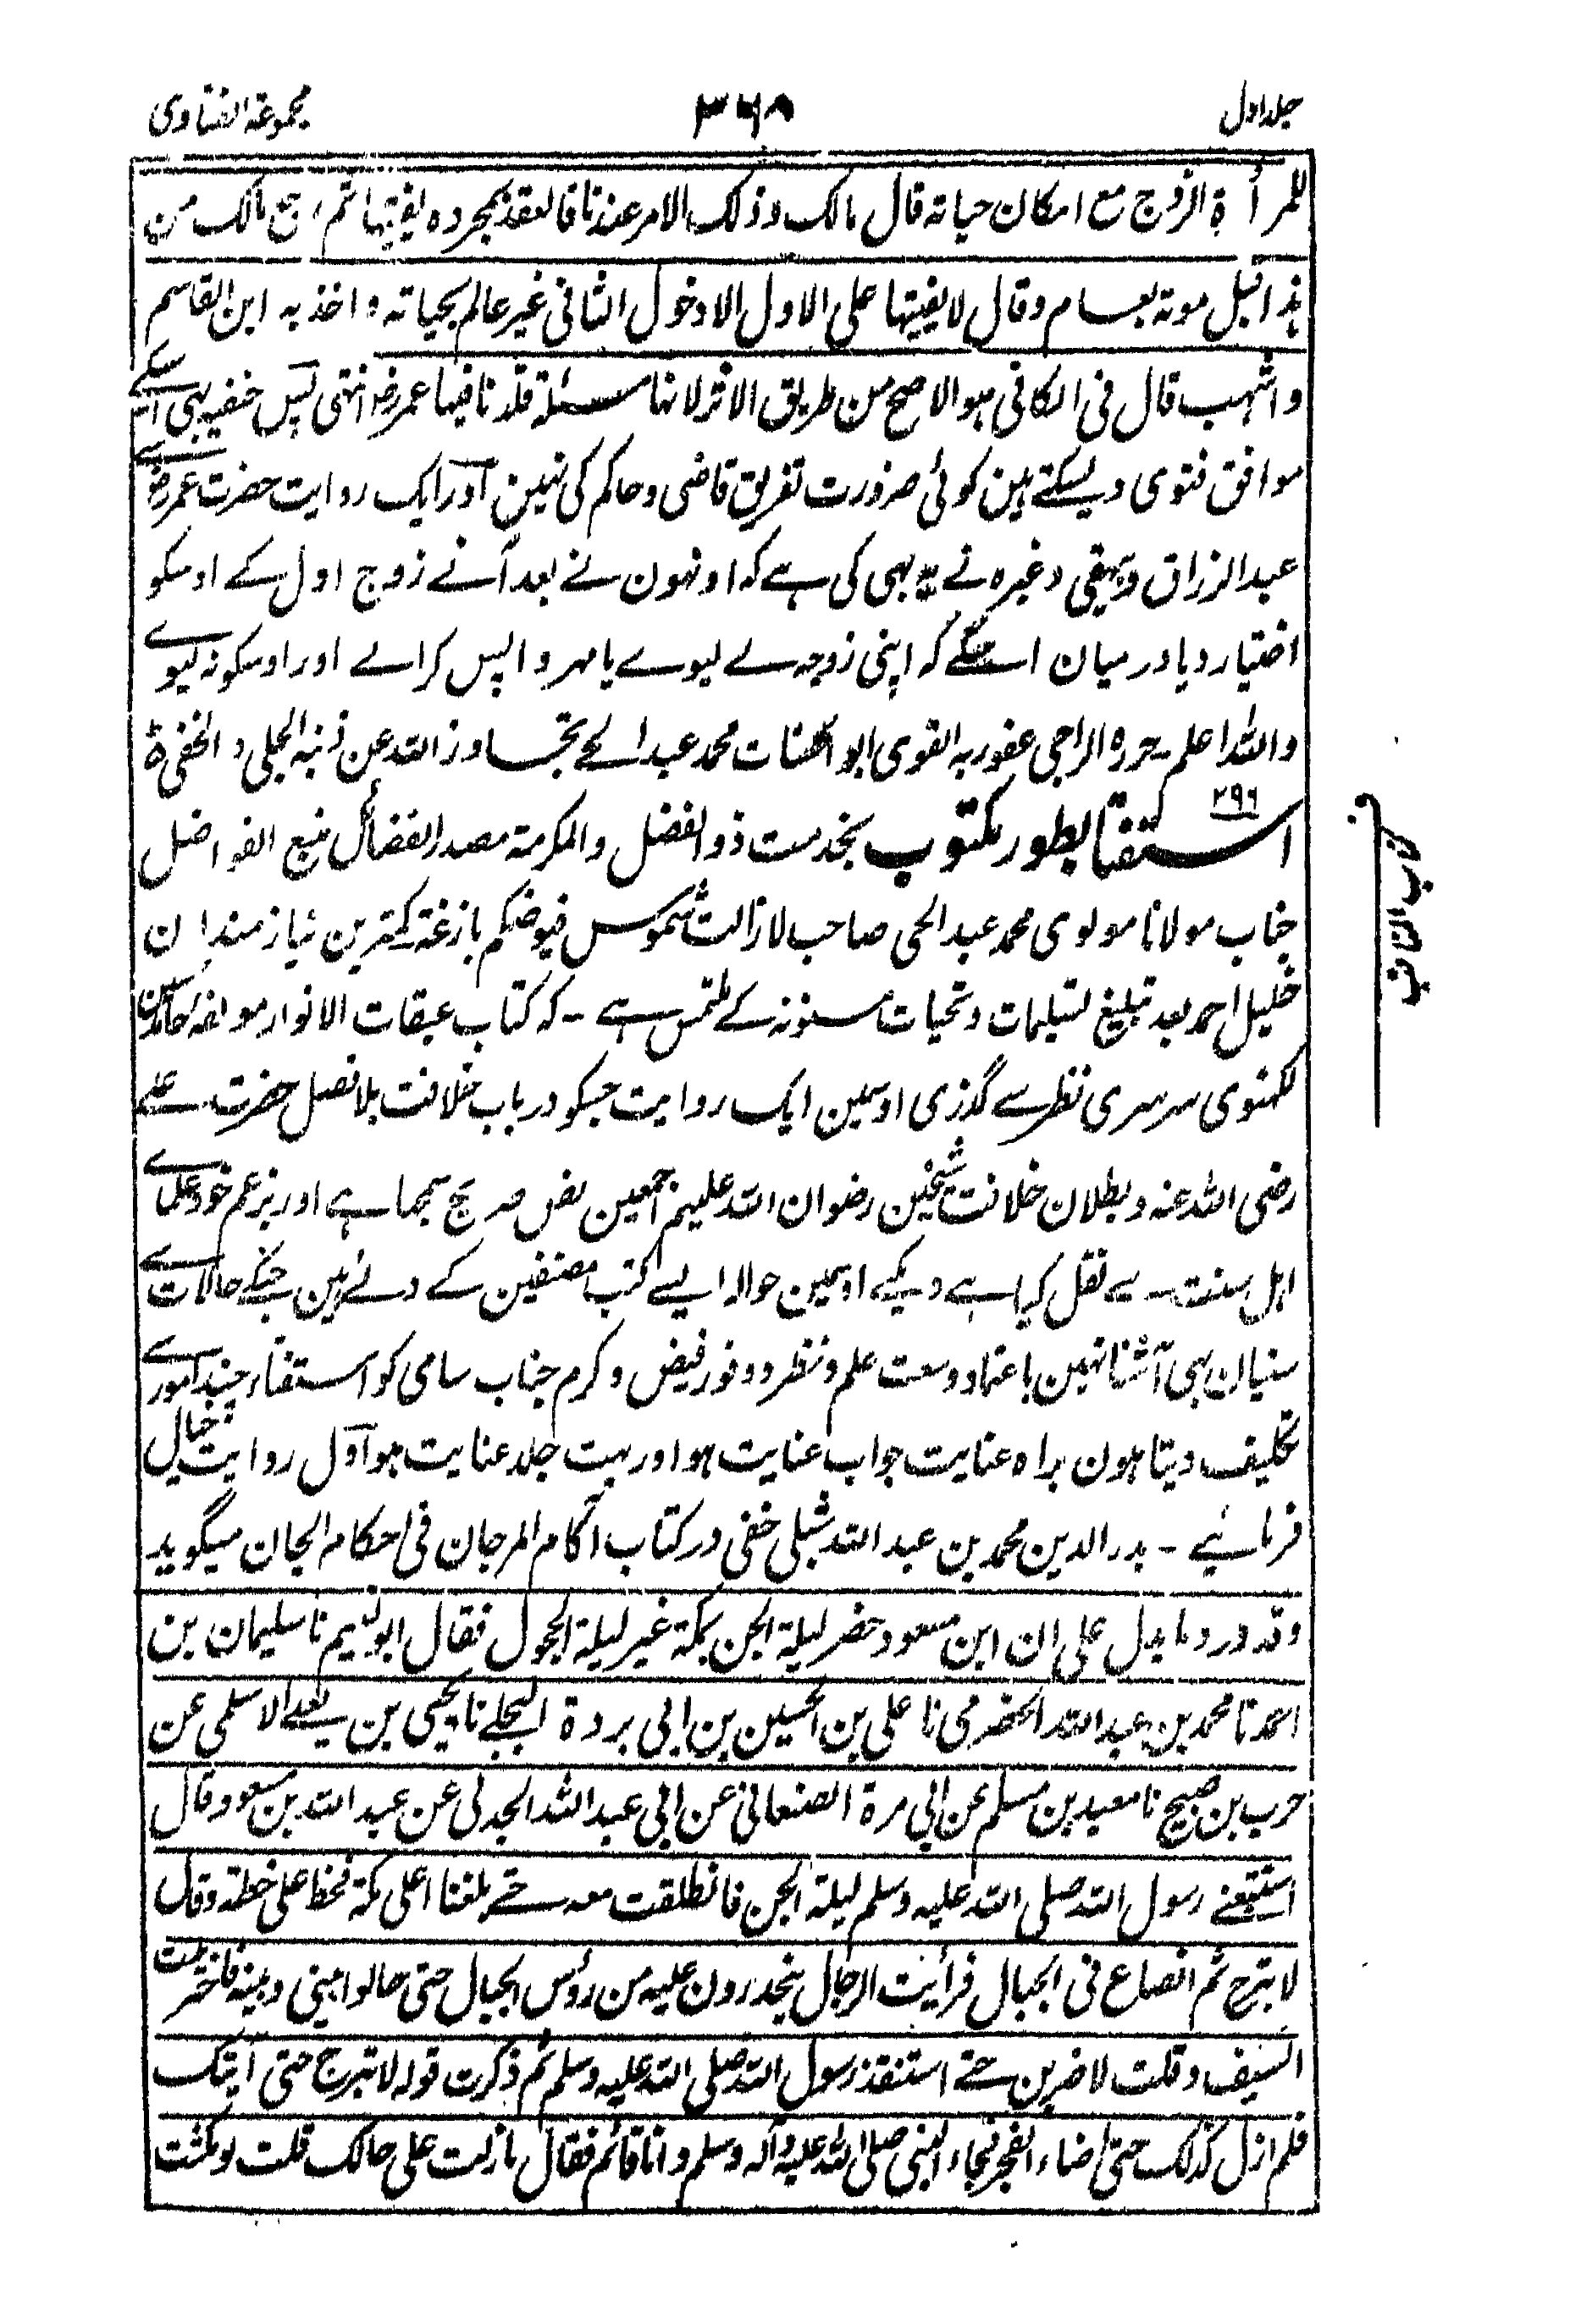 جلد اول
۳۶۸
مجموعة الفتاوی
للمرأة الزوج مع امكان حياته قال مالك وذلك الامر عندنا فالعقد بمجرده يفيتها ثم رجع مالك من
هذا قبل موته بعام وقال لا يفيتها على الاول الا دخول الثاني غير عالم بحياته واخذ به ابن القاسم
واشهب قال في الكافي هو الاصح من طريق الاثر لانها مسئلة قلدنا فيها عمر رض انتهى پس حنفیہ بہی اسکے
موافق فتوی دیسکتے ہین کوئی ضرورت تفریق قاضی وحاکم کی نہین اور ایک روایت حضرت عمر رض سے
عبد الرزاق وبیہقی وغیرہ نے یہ بہی کی ہے کہ اونہون نے بعد آنے زوج اول کے اوسکو
اختیار دیا درمیان اسکے کہ اپنی زوجہ لے لیوے یا مہر واپس کرالے اور اوسکو نہ لیوے
والله اعلم۔ حررہ الراجی عفو ربہ القوی ابو الحسنات محمد عبد الحی تجاوز اللہ عن ذنبہ الجلی والخفی
۲۹۶
استفتا بطور مکتوب بخدمت ذو الفضل والمکرمة مصدر الفضائل منبع الفواضل
جناب مولانا مولوی محمد عبد الحی صاحب لازالت شموس فیوضکم بازغة کمترین نیازمندان
خلیل احمد بعد تبلیغ تسلیمات وتحیات مسنونہ کے ملتمس ہے۔ کہ کتاب عبقات الانوار مولفہ حامد حسین
لکہنوی سرسری نظر سے گذری اوسمین ایک روایت جسکو درباب خلافت بلافصل حضرت علی
رضی اللہ عنہ وبطلان خلافت شیخین رضوان اللہ علیہم اجمعین نص صریح سمجہا ہے اور بزعم خود علماے
اہل سنت سے نقل کیا ہے دیکہے اوسمین حوالہ ایسے کتب مصنفین کے دئے ہین جنکے حالات سے
سنیان بہی آشنا نہین باعتماد وسعت علم ونظر ووفور فیض وکرم جناب سامی کو استفتاء چند امور سے
تکلیف دیتا ہون براہ عنایت جواب عنایت ہو اور بہت جلد عنایت ہو اول روایت خیال
فرمائیے۔ بدر الدین محمد بن عبد اللہ شبلی حنفی در کتاب آکام المرجان فی احکام الجان میگوید
وقد ورد ما يدل على ان ابن مسعود حضر ليلة الجن بمكة غير ليلة الحجون فقال ابو نعيم نا سليمان بن
احمد نا محمد بن عبد الله الحضرمي نا علي بن الحسين بن ابي بردة البجلي نا يحيى بن يعلى الاسلمي عن
حرب بن صبيح نا سعيد بن مسلم عن ابي مرة الصنعاني عن ابي عبد الله الجدلي عن عبد الله بن مسعود قال
استتبعني رسول الله صلى الله عليه وسلم ليلة الجن فانطلقت معه حتى بلغنا اعلى مكة فخط علي خطة وقال
لا تبرح ثم انصاع في الجبال فرأيت الرجال ينحدرون عليه من رؤس الجبال حتى حالوا بيني وبينه فاخترطت
السيف وقلت لاضربن حتى استنقذ رسول الله صلى الله عليه وسلم ثم ذكرت قوله لا تبرح حتى آتيك
فلم ازل كذلك حتى اضاء الفجر فجاء النبي صلى الله عليه وآله وسلم وانا قائم فقال ما زلت على حالك قلت لو مكثت